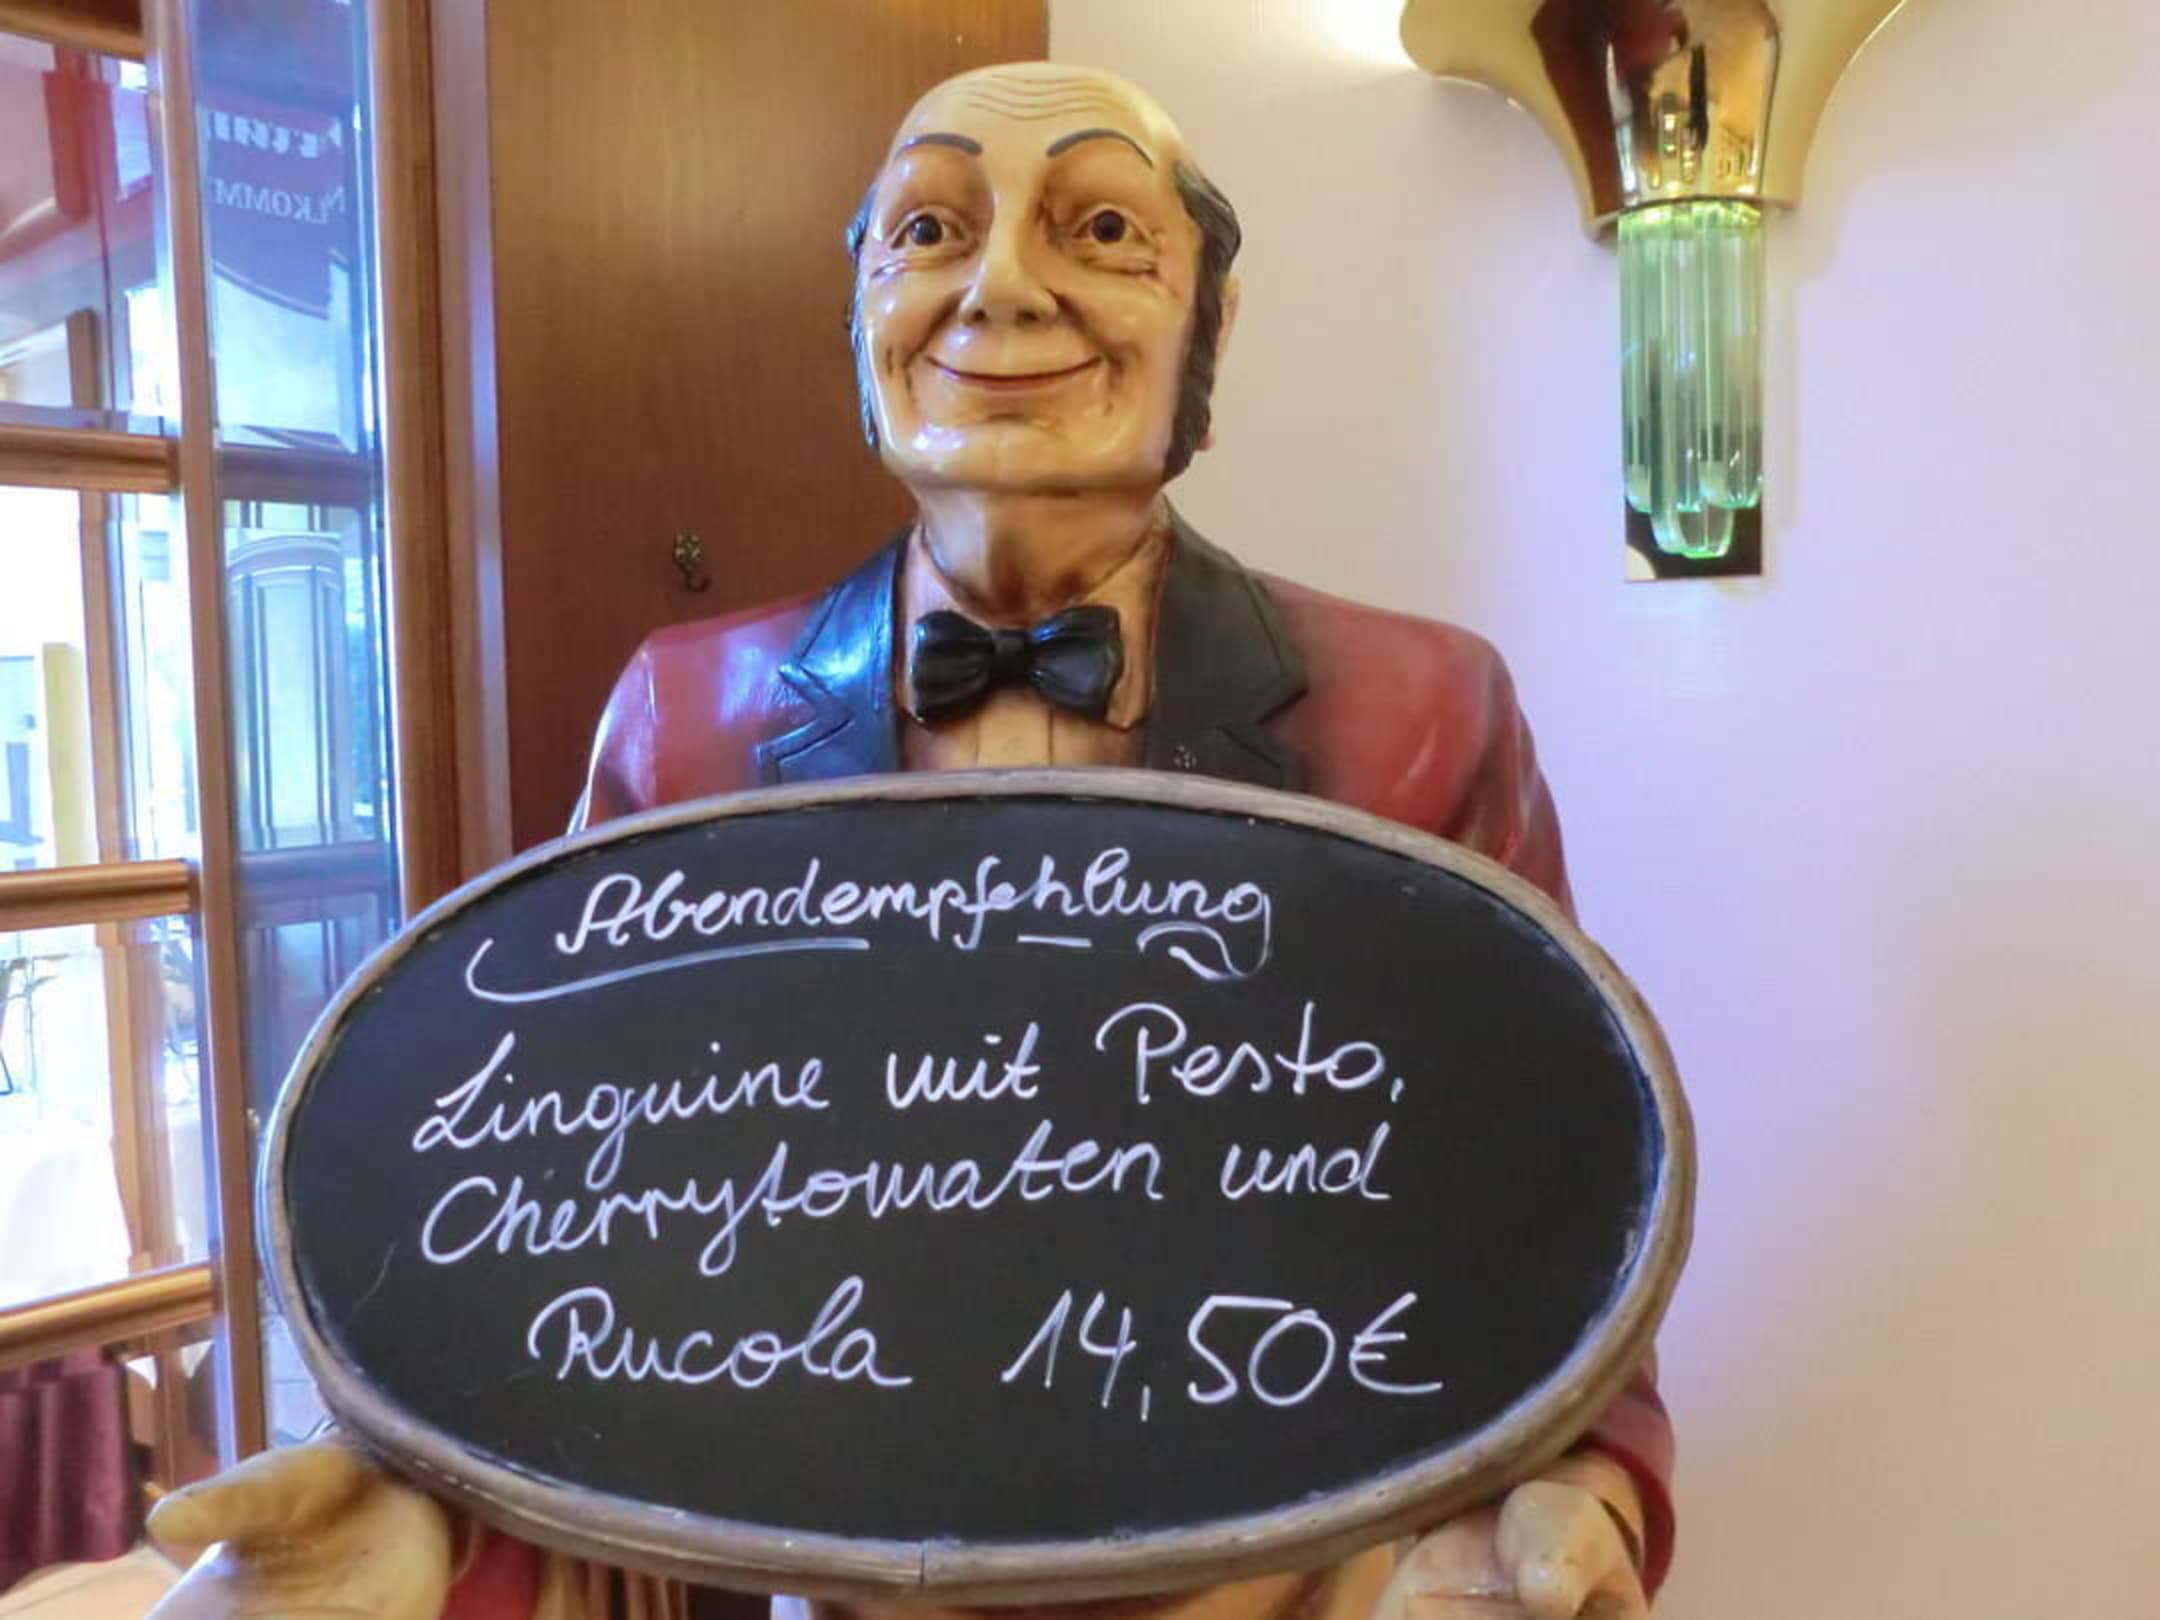 Abendempfehlung
Linguine mit Pesto,
Cherrytomaten und
Rucola 14,50€